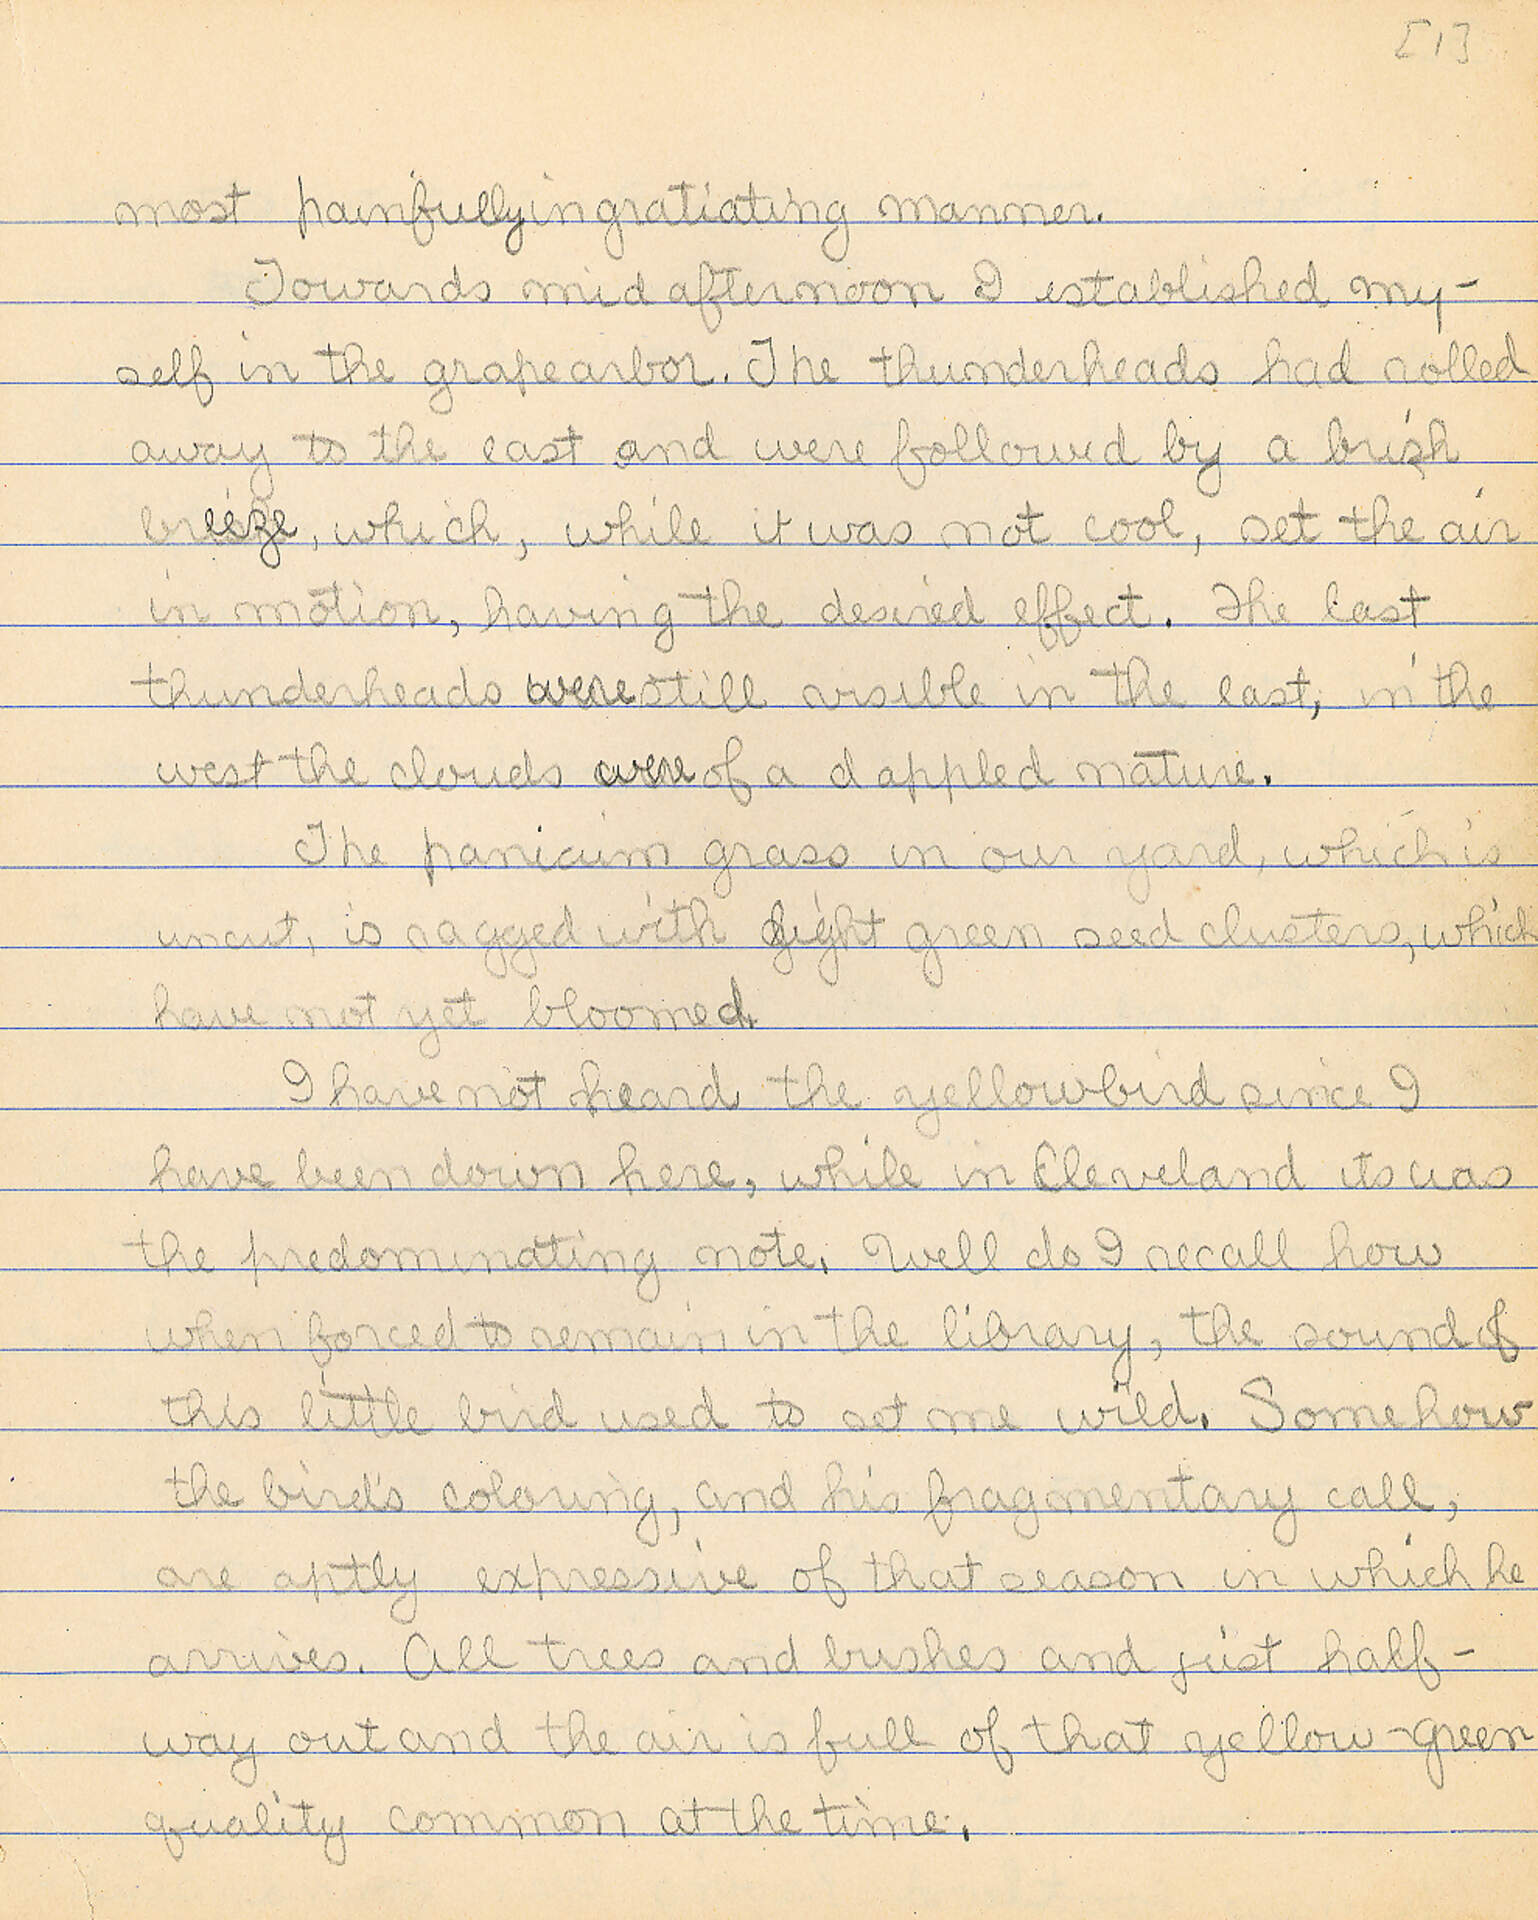 [1]
most painfully ingratiating manner.
Towards mid afternoon I established my-
self in the grape arbor. The thunderheads had rolled
away to the east and were followed by a brisk
breeze, which, while it was not cool, set the air
in motion, having the desired effect. The last
thunderheads were still visible in the east, in the
west the clouds were of a dappled nature.
The panicum grass in our yard, which is
uncut, is ragged with light green seed clusters, which
have not yet bloomed.
I have not heard the yellowbird since I
have been down here, while in Cleveland its was
the predominating note. Well do I recall how
when forced to remain in the library, the sound of
this little bird used to set me wild. Somehow
the bird's coloring, and his fragmentary call,
are aptly expressive of that season in which he
arrives. All trees and bushes and just half-
way out and the air is full of that yellow-green
quality common at the time.